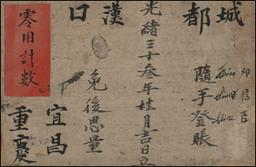 城都
隨手登賬
光緒三十叁年桂月吉日立
漢口
免後思量
宜昌
零用計數
重慶